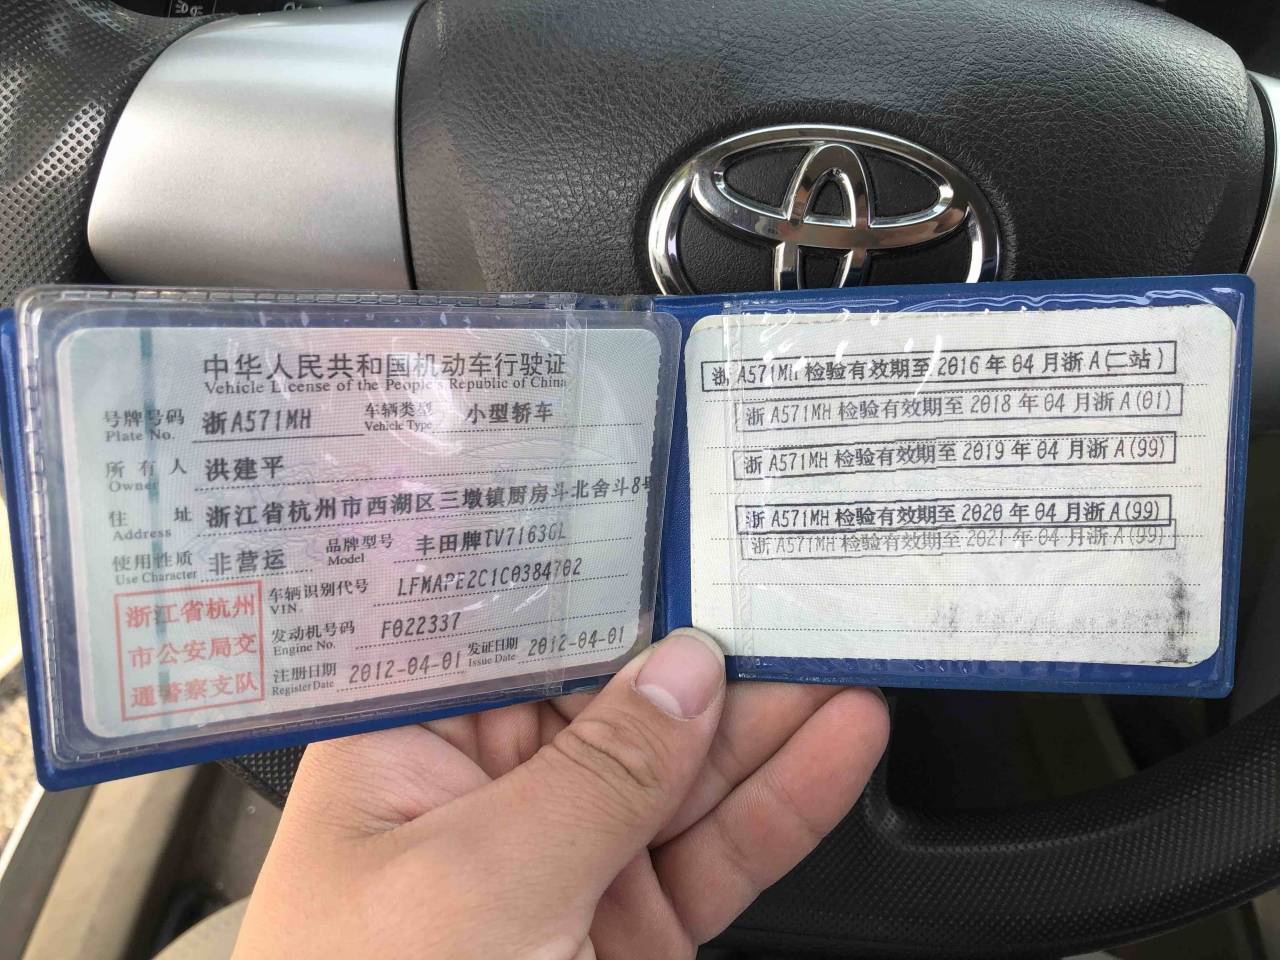 中华人民共和国机动车行驶证
Vehicle License of the People's Republic of China
号牌号码 浙A571MH 车辆类型 小型轿车
Plate No. Vehicle Type
所有人 洪建平
Owner
住址 浙江省杭州市西湖区三墩镇厨房斗北舍斗8号
Address
使用性质 非营运 品牌型号 丰田牌TV7163GL
Use Character Model
浙江省杭州
市公安局交
通警察支队
车辆识别代号 LFMAPE2C1C0384702
VIN.
发动机号码 F022337
Engine No.
注册日期 2012-04-01 发证日期 2012-04-01
Register Date Issue Date
浙A571MH检验有效期至2016年04月浙A(二站)
浙A571MH检验有效期至2018年04月浙A(01)
浙A571MH检验有效期至2019年04月浙A(99)
浙A571MH检验有效期至2020年04月浙A(99)
浙A571MH检验有效期至2021年04月浙A(99)